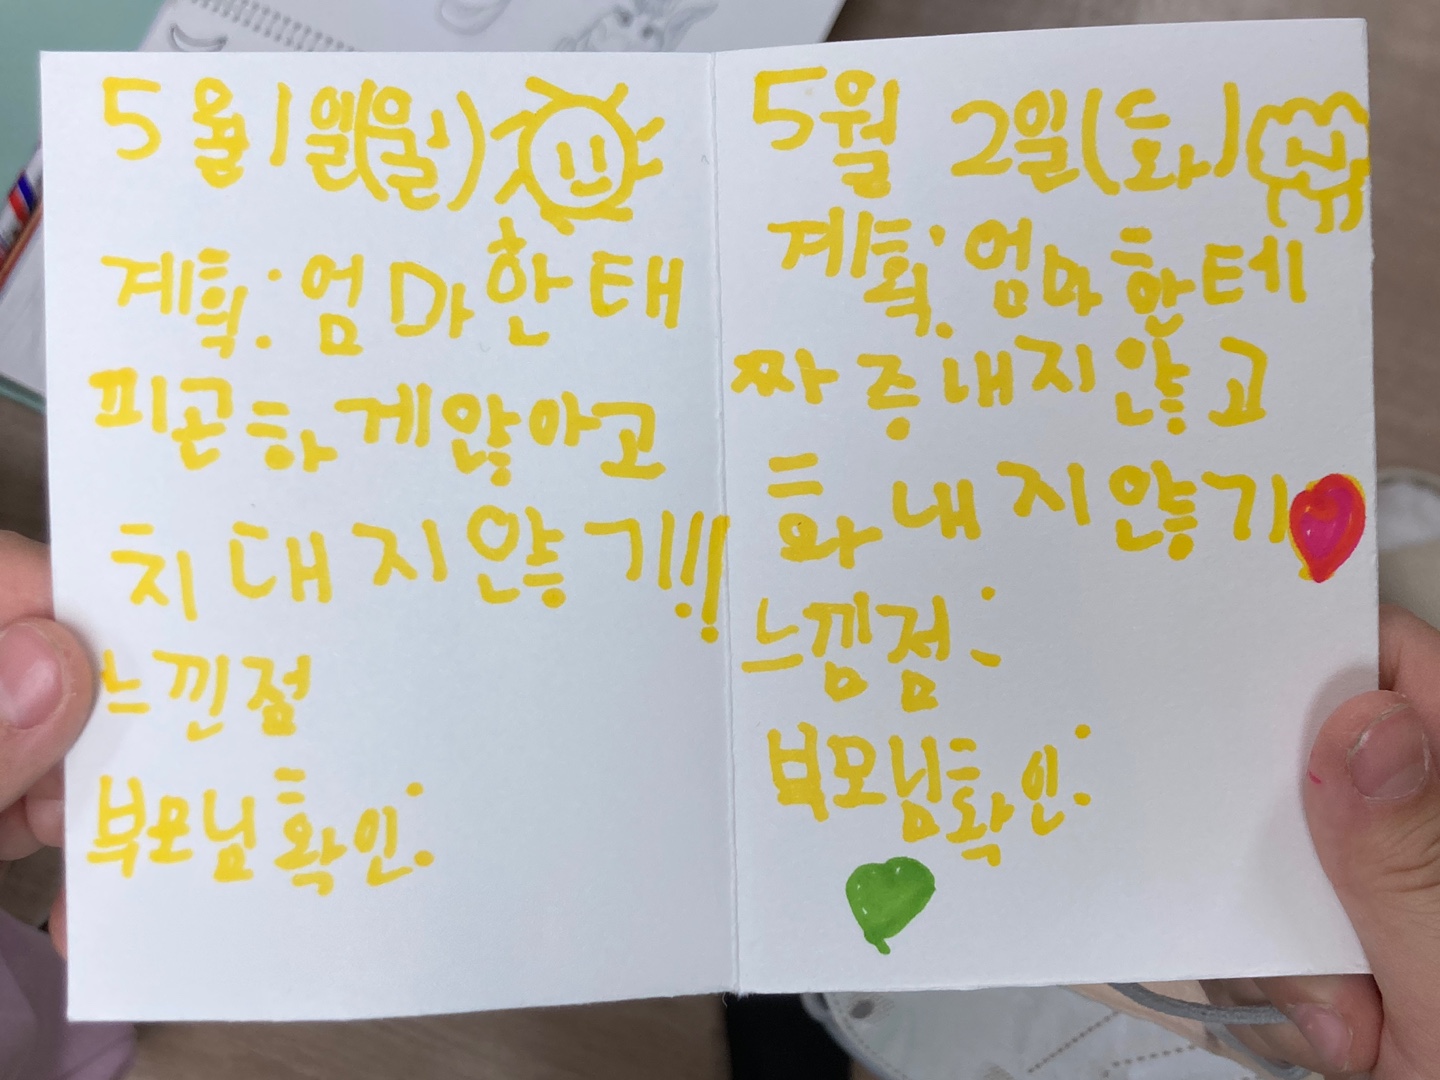 5월 1일(월)
계획: 엄마한태
피곤하게않아고
치대지않기!!!
느낀점
부모님확인:
5월 2일(화)
계획: 엄마한테
짜증내지않고
화내지않기
느낌점:
부모님확인: